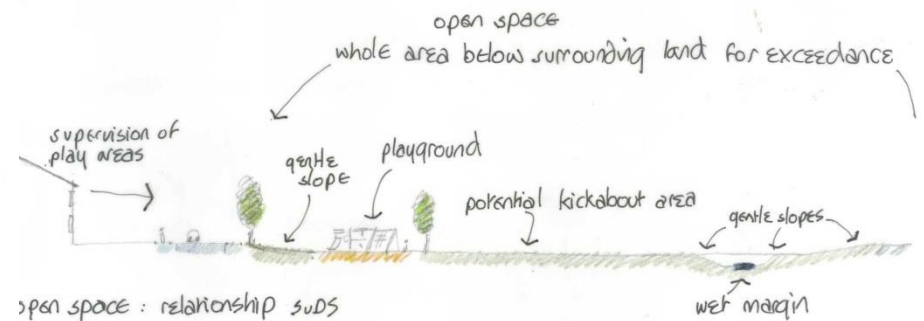 open space
whole area below surrounding land for exceedance
supervision of
play areas
gentle
slope
playground
potential kickabout area
gentle slopes
open space : relationship SuDS
wet margin